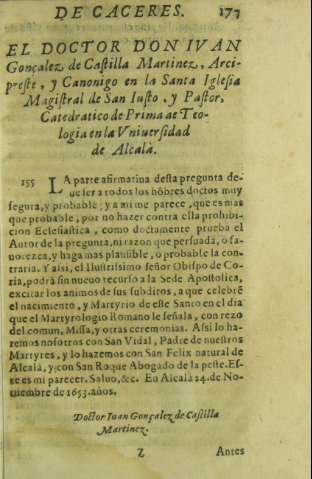 DE CACERES. 177
EL DOCTOR DON IVAN
Gonçalez de Castilla Martinez, Arci-
preste, y Canonigo en la Santa Iglesia
Magistral de San Iusto, y Pastor,
Catedratico de Prima de Teo-
logia en la Vniuersidad
de Alcalà.
155 LA parte afirmatiua desta pregunta de-
ue ser a todos los hõbres doctos muy
segura, y probable; y a mi me parece, que es mas
que probable, por no hazer contra ella prohibi-
cion Eclesiastica, como doctamente prueba el
Autor de la pregunta, ni razon que persuada, ò fa-
uorezca, y haga mas plausible, ò probable la con-
traria. Y assi, el Ilustrissimo señor Obispo de Co-
ria, podrà sin nueuo recurso a la Sede Apostolica,
excitar los animos de sus subditos, a que celebrẽ
el nacimiento, y Martyrio de este Santo en el dia
que el Martyrologio Romano le señala, con rezo
del comun, Missa, y otras ceremonias. Assi lo ha-
remos nosotros con San Vidal, Padre de nuestros
Martyres, y lo hazemos con San Felix natural de
Alcalà, y con San Roque Abogado de la peste. Es-
te es mi parecer. Saluo, &c. En Alcalà 24. de No-
uiembre de 1653. años.
Doctor Iuan Gonçalez de Castilla
Martinez.
Z Antes